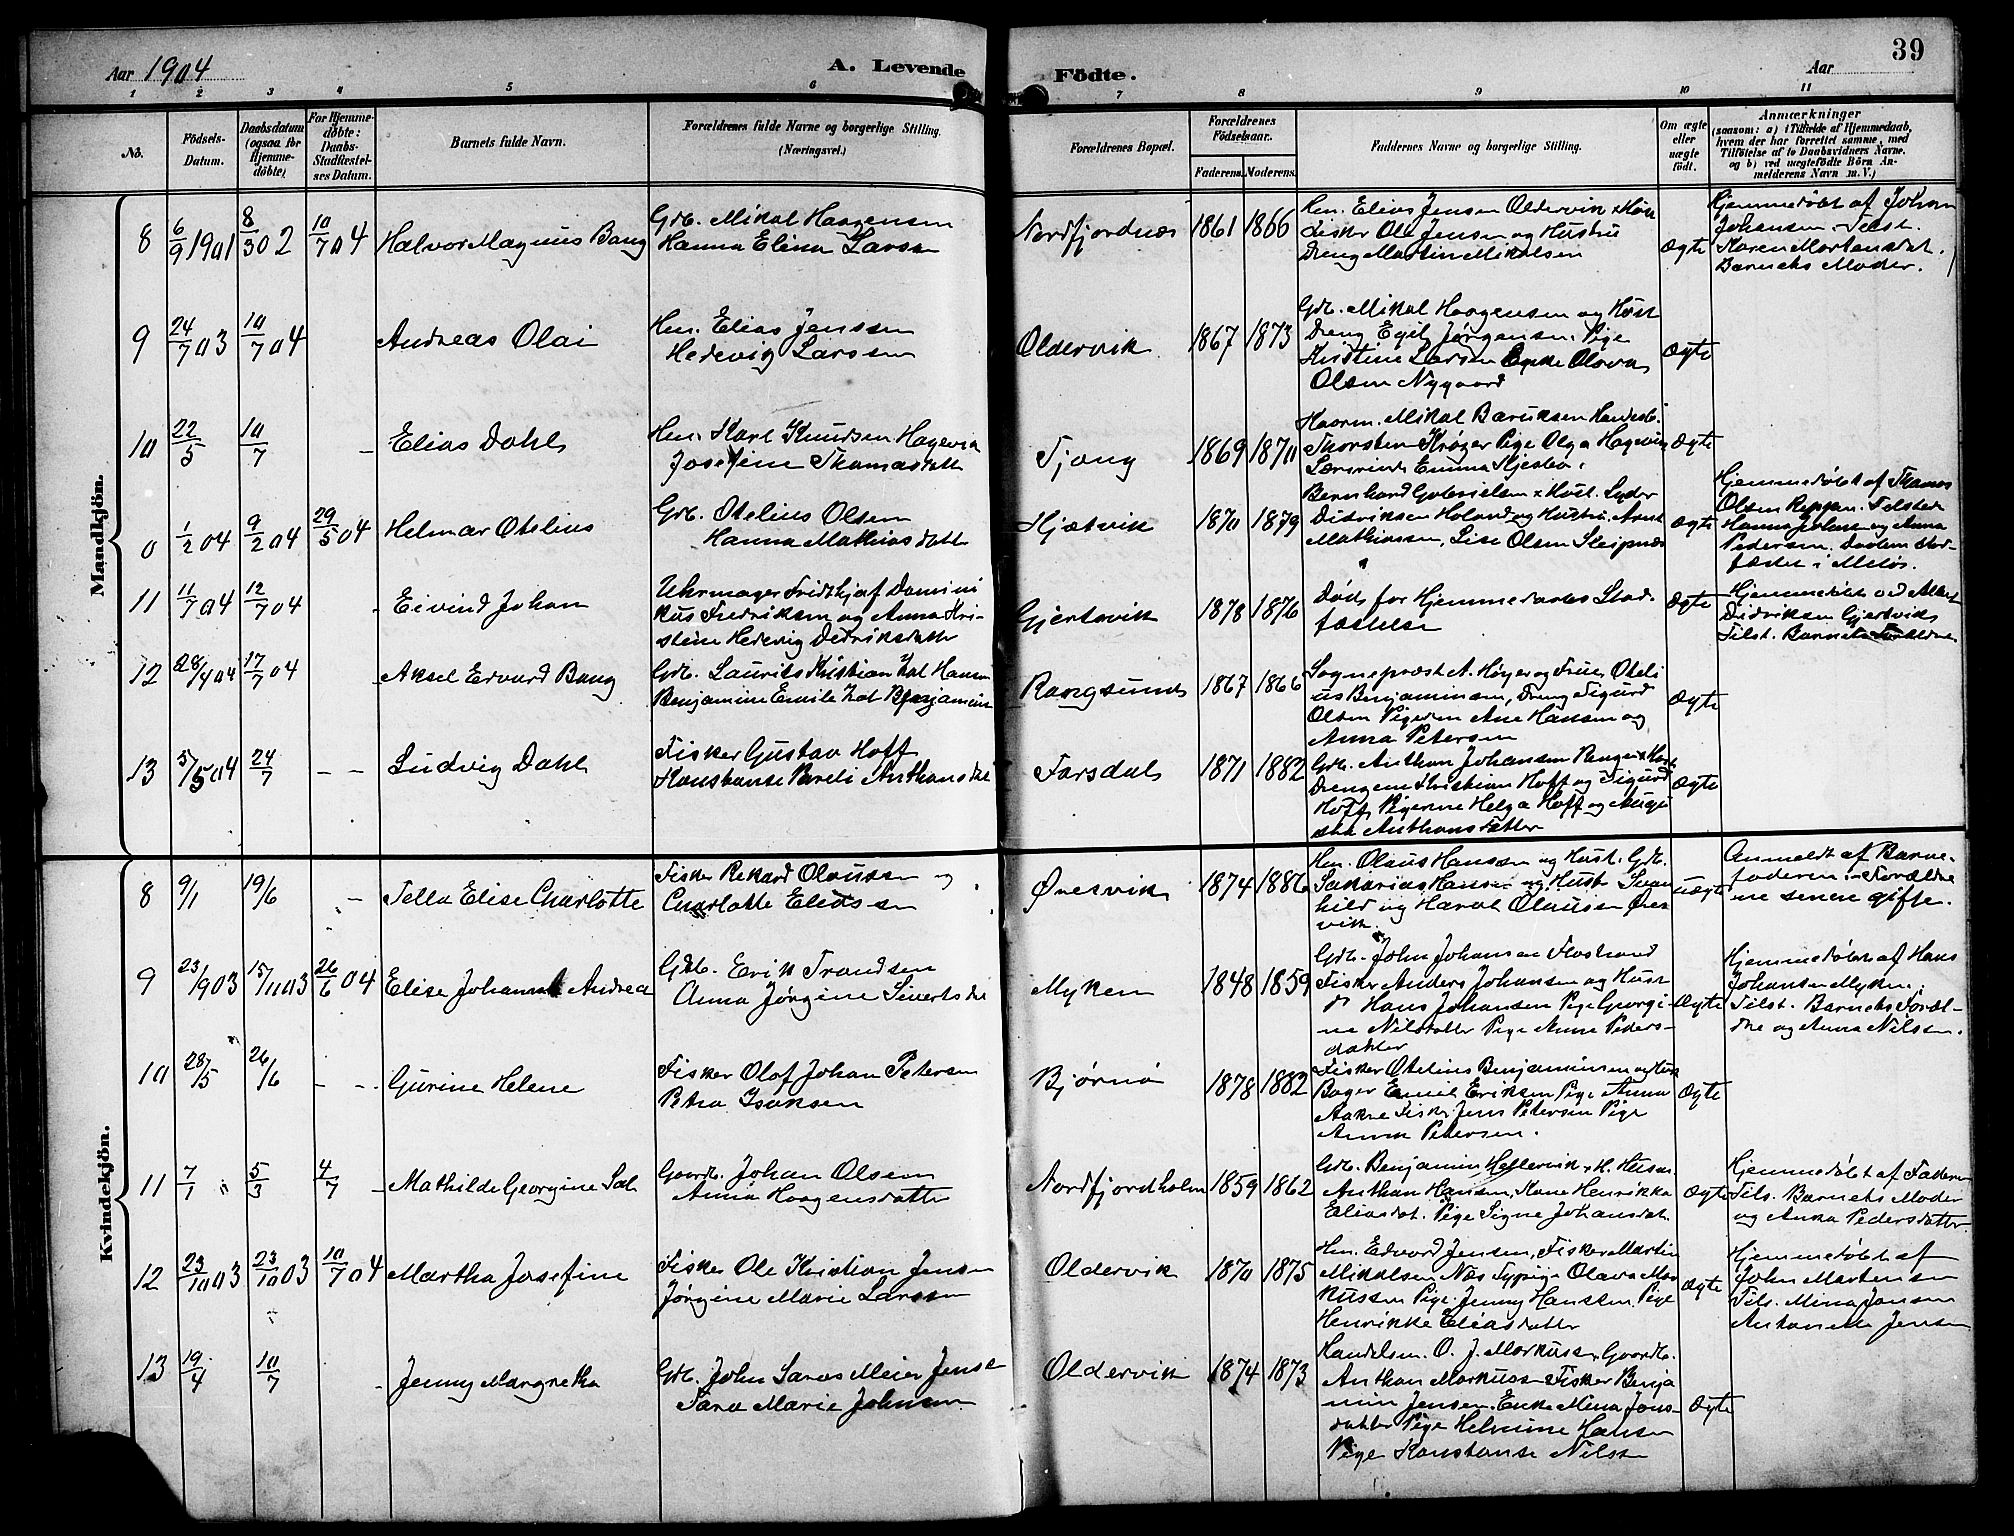 Aar 1904
A. Levende Födte.
Aar
39
1 2 3 4 5 6 7 8 9 10 11
No.
Födsels-Datum.
Daabsdatum (ogsaa for Hjemme-döbte)
For Hjemme-döbte: Daabs-Stadfæstel-ses Datum.
Barnets fulde Navn.
Forældrenes fulde Navne og borgerlige Stilling.
(Næringsvei.)
Forældrenes Bopæl.
Forældrenes Födselsaar.
Faderens. Moderens.
Faddernes Navne og borgerlige Stilling.
Om ægte eller uægte födt.
Anmærkninger
(saasom: a) i Tilfælde af Hjemmedaab,
hvem der har forrettet samme, med
Tilföielse af to Daabsvidners Navne,
og b) ved uægtefödte Börn An-
melderens Navn m. V.)
Mandkjön.
8 6/9 1901 8/3 02 10/7 04 Halvor Magnus Bang
Grb. Mikal Haagensen
Hanna Elina Larsn
Nordfjordnæs 1861 1866
Hen. Elias Jensen Oldervik
Fisker Ole Jensen og Hustru
Dreng Martin Mikalsen
Ægte
Hjemmedøbt af Johan
Johansen. Test.
Karen Mortensdat.
Barnets Moder.
9 24/7 03 10/7 04 Andreas Olai
Hen. Elias Jenssen
Hedevig Larssen
Oldervik 1867 1873
Grb. Mikal Haagensen og Hust
Dreng Egil Jørgensen. Pige
Kristine Larsen Enke Olava
Olsen Nygaard
Ægte
10 22/5 10/7 - Elias Dahl
Hen. Karl Knudsen Hagevik
Josefine Thomasdatt
Tjong 1869 1870
Mikal Baruksen Handelsb.
Thorsten Krøger Pige Olga Hagevik
Lærerinde Emma
Ægte
0 1/2 04 9/2 04 29/5 04 Helmar Otelius
Grb. Otelius Olsen
Hanna Mathiasdatt
Hjætvik 1870 1879
Bernhard Gabrielsen & Hust.
Didriksen Holand og Hustru.
Mathiassen, Lise Olsen Sleipnæs
Ægte
Hjemmedøbt af Thomas
Olsen Reppen. Tilstede
Hanna Johnsen og Anna
Pedersen. Daaben stad-
fæstet i Meløy.
11 11/7 04 12/7 04 - Eivind Johan
Uhrmager Fridthjof Domini
kus Fredriksen og Anna Kri-
stine Hedevig Didriksdatter
Gjersvik 1878 1876
Død før Hjemmedaabs Stad-
fæstelse
Ægte
Hjemmedøbt ved Albert
Didriksen Gjersvik
Tilst. Barnets Forældre
12 28/4 04 17/7 04 - Aksel Edvard Bang
Grb. Laurits Kristian Zal Hansen
Benjamine Emilie Zal Benjamins
Rangsund 1867 1866
Sognepræst A. Høyer og Frue, Oteli
us Benjaminsen, Dreng Sigurd
Olsen Pigerne Ane Hansen og
Anna Petersen
Ægte
13 5/5 04 24/7 - - Ludvig Dahl
Fisker Gustav Hoff
Konstanse Pareli Anthonsdat
Farsdal 1871 1882
Grb. Anthon Johansen
Drengene Kristian Hoff og Sigurd
Hoff, Pigerne Helga Hoff og Augu
sta Anthonsdatter
Ægte
Kvindekjön.
8 9/1 19/6 - Tella Elise Charlotte
Fisker Rikard Olaussen og
Charlotte Eliassen
Øresvik 1874 1886
Hen. Olaus Hansen og Hust. Grb.
Sakarias Hansen og Hust Svan
hild og Haral Olausen Øres
vik.
uægte
Anmeldt af Barne-
faderen. Forældre
ne senere gifte.
9 23/9 03 15/11 03 26/6 04 Elise Johanna Andrea
Grb. Erik Trondsen
Anna Jørgine Sivertsdat
Myken 1848 1859
Grb. John Johansen Flostrand
Fisker Anders Johansen og Hust
Hans Johansen Pige Georgi-
ne Nilsdatter Pige Anne Peders-
datter
Ægte
Hjemmedøbt af Hans
Johansen Myken.
Tilst. Barnets Foræl-
dre og Anna Nilsen.
10 28/5 26/6 - - Gurine Helene
Fisker Olof Johan Petersen
Petra Isaksen
Bjørnø 1878 1882
Fisker Otelius Benjaminsen og Hust
Bager Emil Eriksen Pige Anna
Aakre Fisker Jens Petersen Pige
Anna Petersen.
Ægte
11 7/1 5/3 4/7 - Mathilde Georgine Sal
Gaardb. Johan Olsen
Anna Haagensdatter
Nordfjordholm 1859 1862
Grb. Benjamin Hellervik & H. Husm
Anthon Hansen, Kone Henrikka
Eliasdat. Pige Signe Johansdat.
Ægte
Hjemmedøbt af Faderen
Tils. Barnets Moder
og Anna Pedersdatter
12 23/10 03 23/10 03 10/7 04 Martha Josefine
Fisker Ole Kristian Jensen
Jørgine Marie Larssen
Oldervik 1870 1875
Hen. Edvard Jensen, Fisker Martin
Mikalsen Næs Sypige Olava Mar
kussen Pige Jenny Hanssen Pige
Henrikke Eliasdatter
Ægte
Hjemmedøbt af
John Martensen
Tils. Mina Jonsen
Antonette Jensen
13 19/4 10/7 - Jenny Margretha
Grb. John Saras Meier Jense
Sara Marie Johnsen
Oldervik 1874 1873
Handelsm. O. J. Markussen, Gaardb.
Anthon Markussen Fisker Benja
min Jensen. Enke Mina Jons-
datter Pige Helmine Hansen
Pige Konstanse Nilssn
Ægte